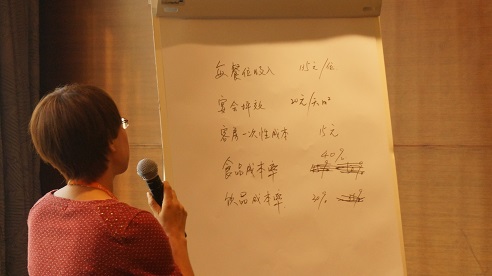 每餐位收入 115元/位
宴会坪效 20元/天m²
客房一次性成本 15元
40%
食品成本率
饮品成本率 20%